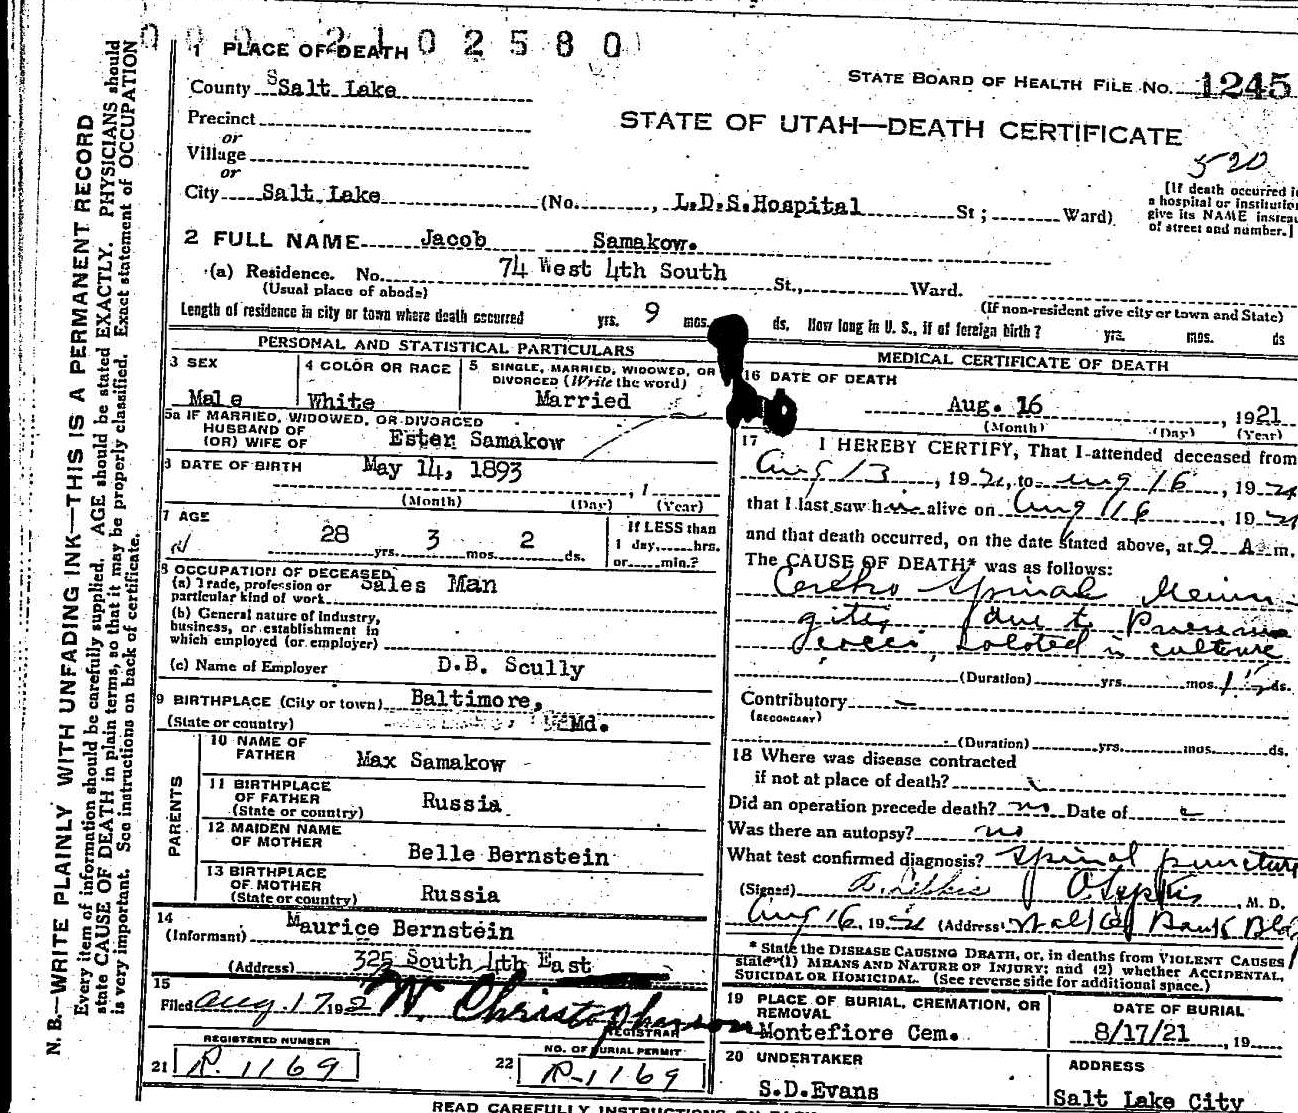 0 0 0 2 1 0 2 5 8 0
1 PLACE OF DEATH
County Salt Lake
STATE BOARD OF HEALTH FILE NO. 1245
Precinct
or
Village
or
STATE OF UTAH—DEATH CERTIFICATE
520
City Salt Lake (No. , L.D.S.Hospital St ; Ward)
[If death occurred in
a hospital or institution
give its NAME instead
of street and number.]
2 FULL NAME Jacob Samakow.
(a) Residence. No. 74 West 4th South St., Ward.
(Usual place of abode)
(If non-resident give city or town and State)
Length of residence in city or town where death occurred yrs. 9 mos. ds. How long in U. S., if of foreign birth? yrs. mos. ds
PERSONAL AND STATISTICAL PARTICULARS
3 SEX
Male
4 COLOR OR RACE
White
5 SINGLE, MARRIED, WIDOWED, OR
DIVORCED (Write the word)
Married
5a IF MARRIED, WIDOWED, OR DIVORCED
HUSBAND OF
(OR) WIFE OF Ester Samakow
DATE OF BIRTH May 14, 1893
(Month) (Day) (Year)
7 AGE
28 yrs. 3 mos. 2 ds.
If LESS than
1 day, hrs.
or min.?
8 OCCUPATION OF DECEASED
(a) Trade, profession or
particular kind of work Sales Man
(b) General nature of industry,
business, or establishment in
which employed (or employer)
(c) Name of Employer D.B. Scully
9 BIRTHPLACE (City or town) Baltimore,
(State or country) Md.
PARENTS
10 NAME OF
FATHER Max Samakow
11 BIRTHPLACE
OF FATHER
(State or country) Russia
12 MAIDEN NAME
OF MOTHER Belle Bernstein
13 BIRTHPLACE
OF MOTHER
(State or country) Russia
14
(Informant) Maurice Bernstein
(Address) 325 South 4th East
15
Filed Aug. 17 192 W. Christopherson
REGISTRAR
21 REGISTERED NUMBER
R. 1169
22 NO. OF BURIAL PERMIT
R-1169
MEDICAL CERTIFICATE OF DEATH
16 DATE OF DEATH
Aug. 16 , 1921
(Month) (Day) (Year)
17 I HEREBY CERTIFY, That I attended deceased from
Aug 13, 1921, to Aug 16, 1921
that I last saw him alive on Aug 16, 1921
and that death occurred, on the date stated above, at 9 A m.
The CAUSE OF DEATH* was as follows:
Cerebro Spinal Menin-
gitis due to Pneumo
cocci, isolated in culture
(Duration) yrs. mos. ds.
Contributory
(SECONDARY)
(Duration) yrs. mos. ds.
18 Where was disease contracted
if not at place of death?
Did an operation precede death? no Date of
Was there an autopsy? no
What test confirmed diagnosis? Spinal puncture
(Signed) , M. D.
Aug 16, 1921 (Address) Walker Bank Bldg
* State the DISEASE CAUSING DEATH, or, in deaths from VIOLENT CAUSES
state (1) MEANS AND NATURE OF INJURY; and (2) whether ACCIDENTAL,
SUICIDAL OR HOMICIDAL. (See reverse side for additional space.)
19 PLACE OF BURIAL, CREMATION, OR
REMOVAL
Montefiore Cem.
DATE OF BURIAL
8/17/21 , 19
20 UNDERTAKER
S.D.Evans
ADDRESS
Salt Lake City
N. B.—WRITE PLAINLY WITH UNFADING INK—THIS IS A PERMANENT RECORD
Every item of information should be carefully supplied. AGE should be stated EXACTLY. PHYSICIANS should
state CAUSE OF DEATH in plain terms, so that it may be properly classified. Exact statement of OCCUPATION
is very important. See instructions on back of certificate.
READ CAREFULLY INSTRUCTIONS ON